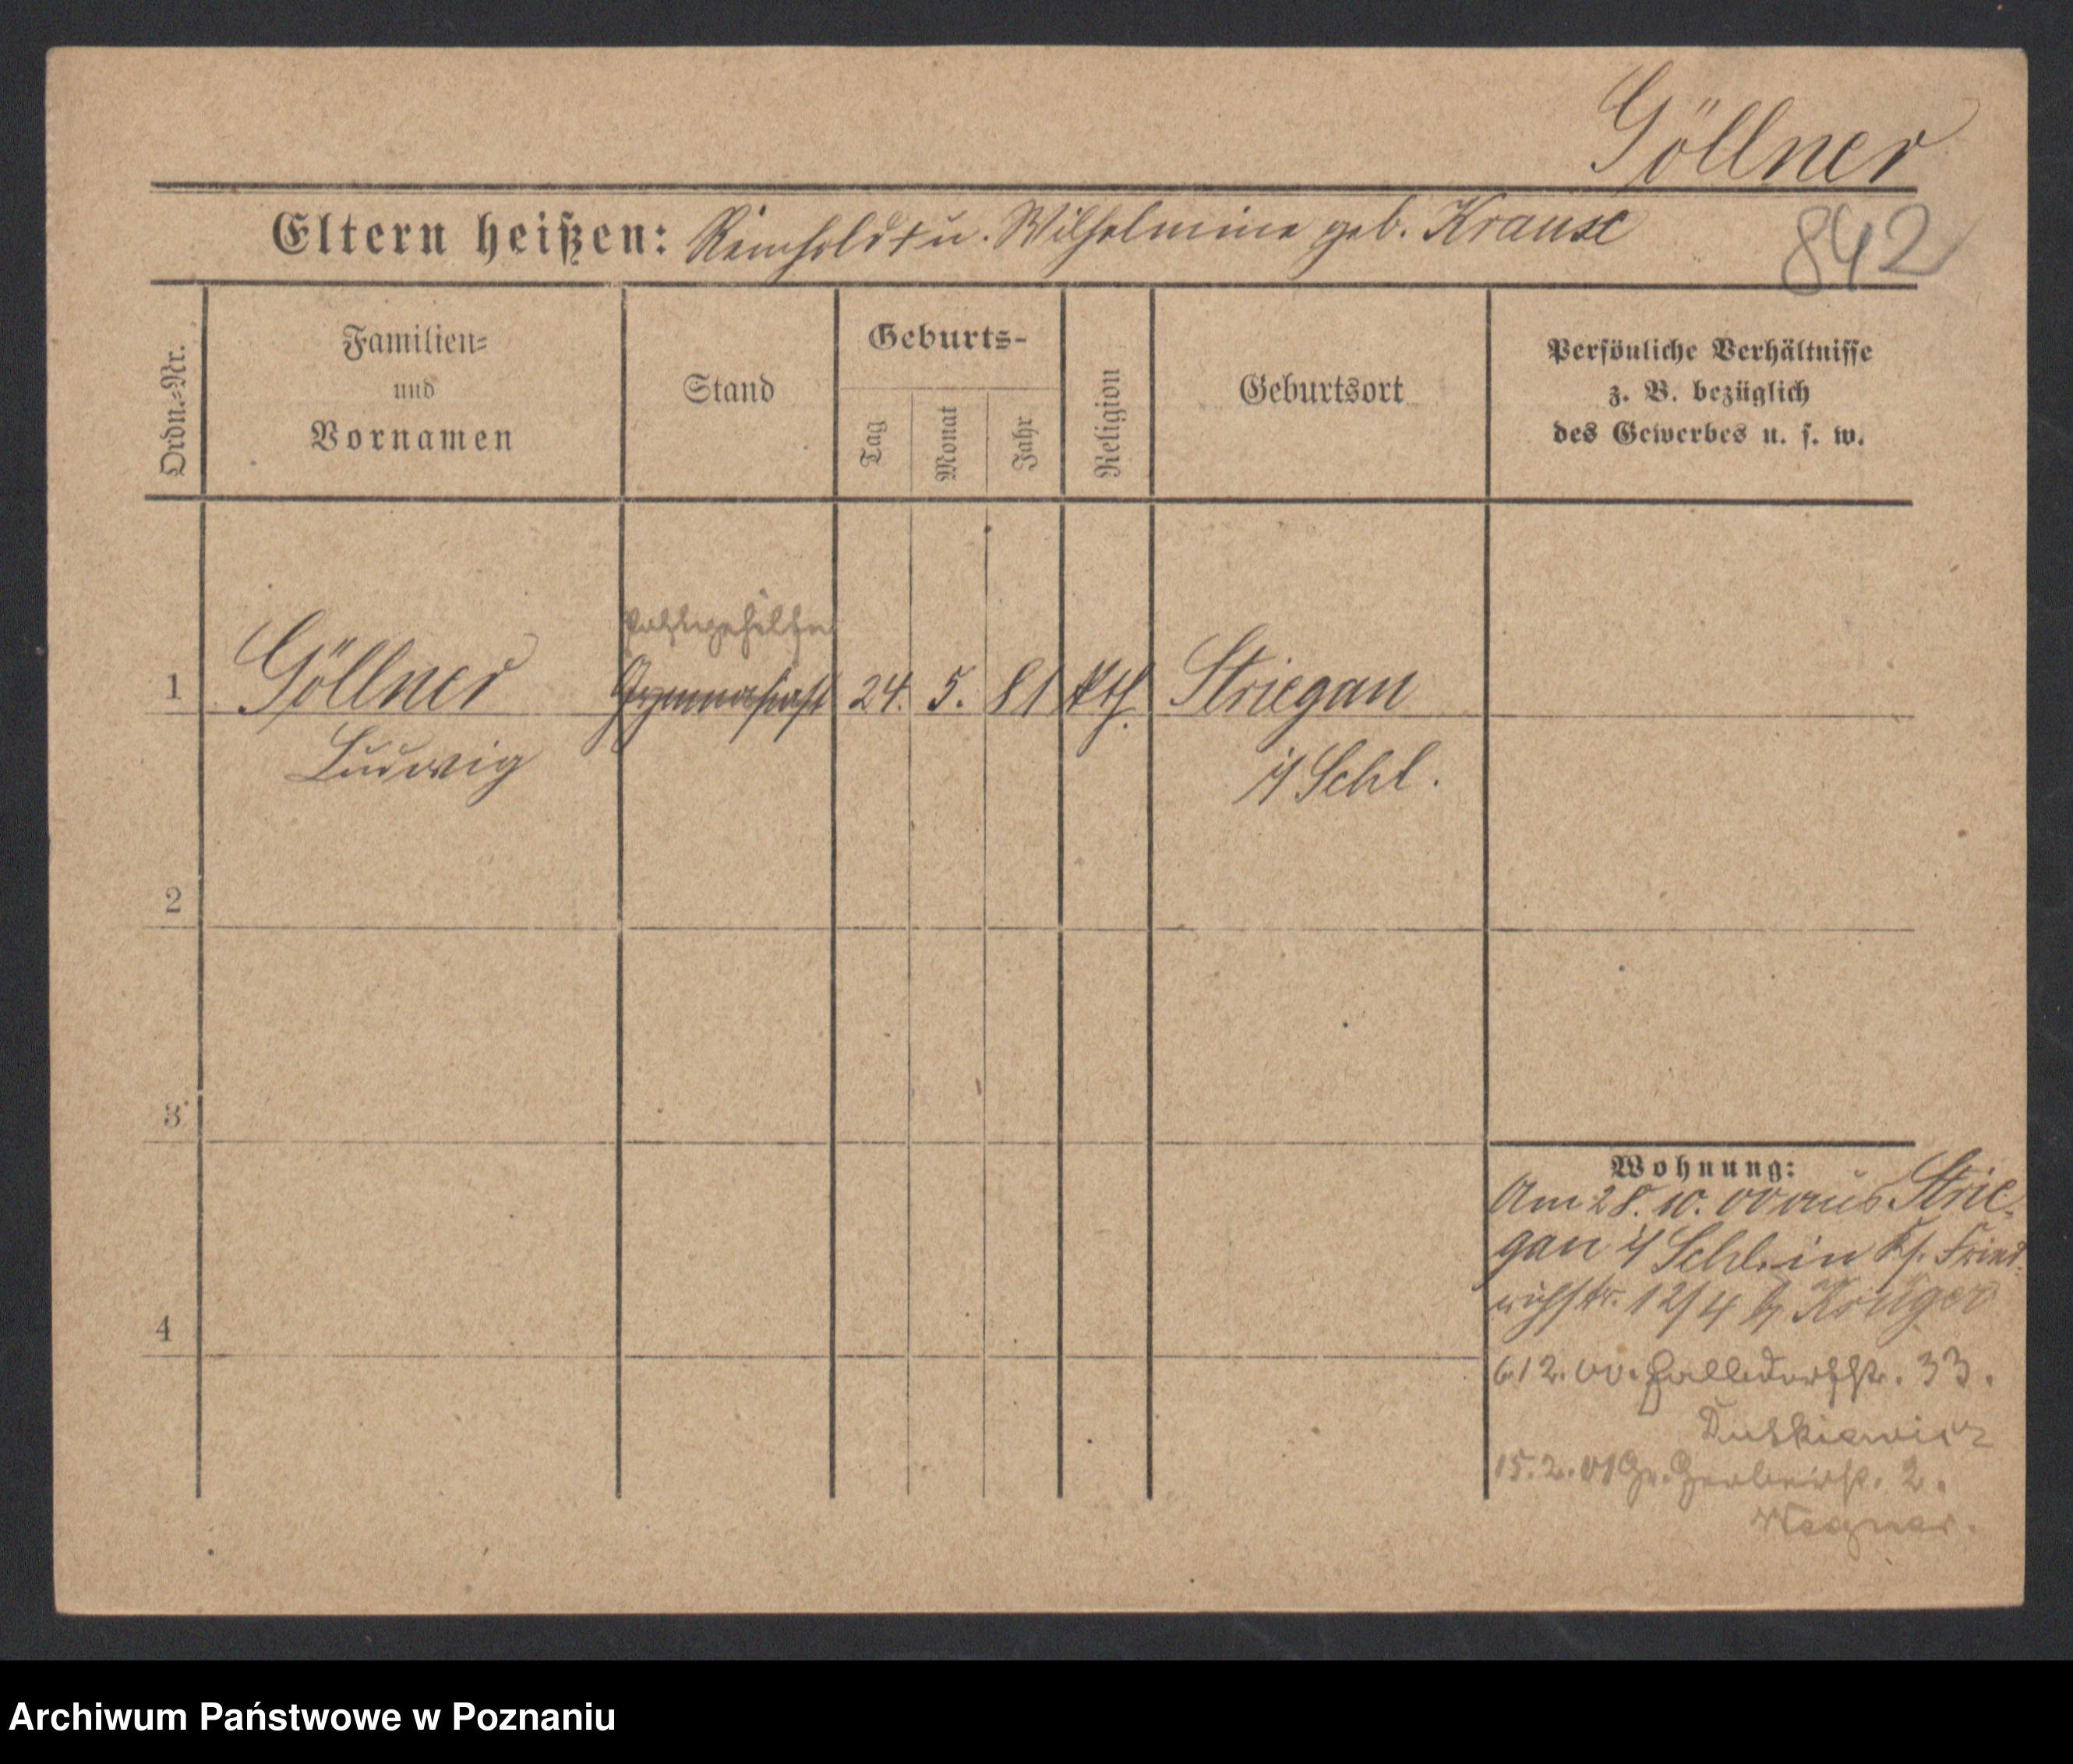 Göllner
Eltern heißen: Reinhold † u. Wilhelmine geb. Krause
842
Ordn.=Nr.
Familien=
und
Vornamen
Stand
Geburts-
Tag
Monat
Jahr
Religion
Geburtsort
Persönliche Verhältnisse
z. B. bezüglich
des Gewerbes u. s. w.
1 Göllner Gymnasiast 24. 5. 81 kth. Striegau
Ludwig
i/ Schl.
2
3
4
Wohnung:
Am 28. 10. 00 aus Strie-
gau i/ Schl. in Fried-
richstr. 12/4 b/ Krüger
6.12.00. Halldorfstr. 33.
15.2.01 Gr. Gerberstr. 2.
Wegner.
Archiwum Państwowe w Poznaniu